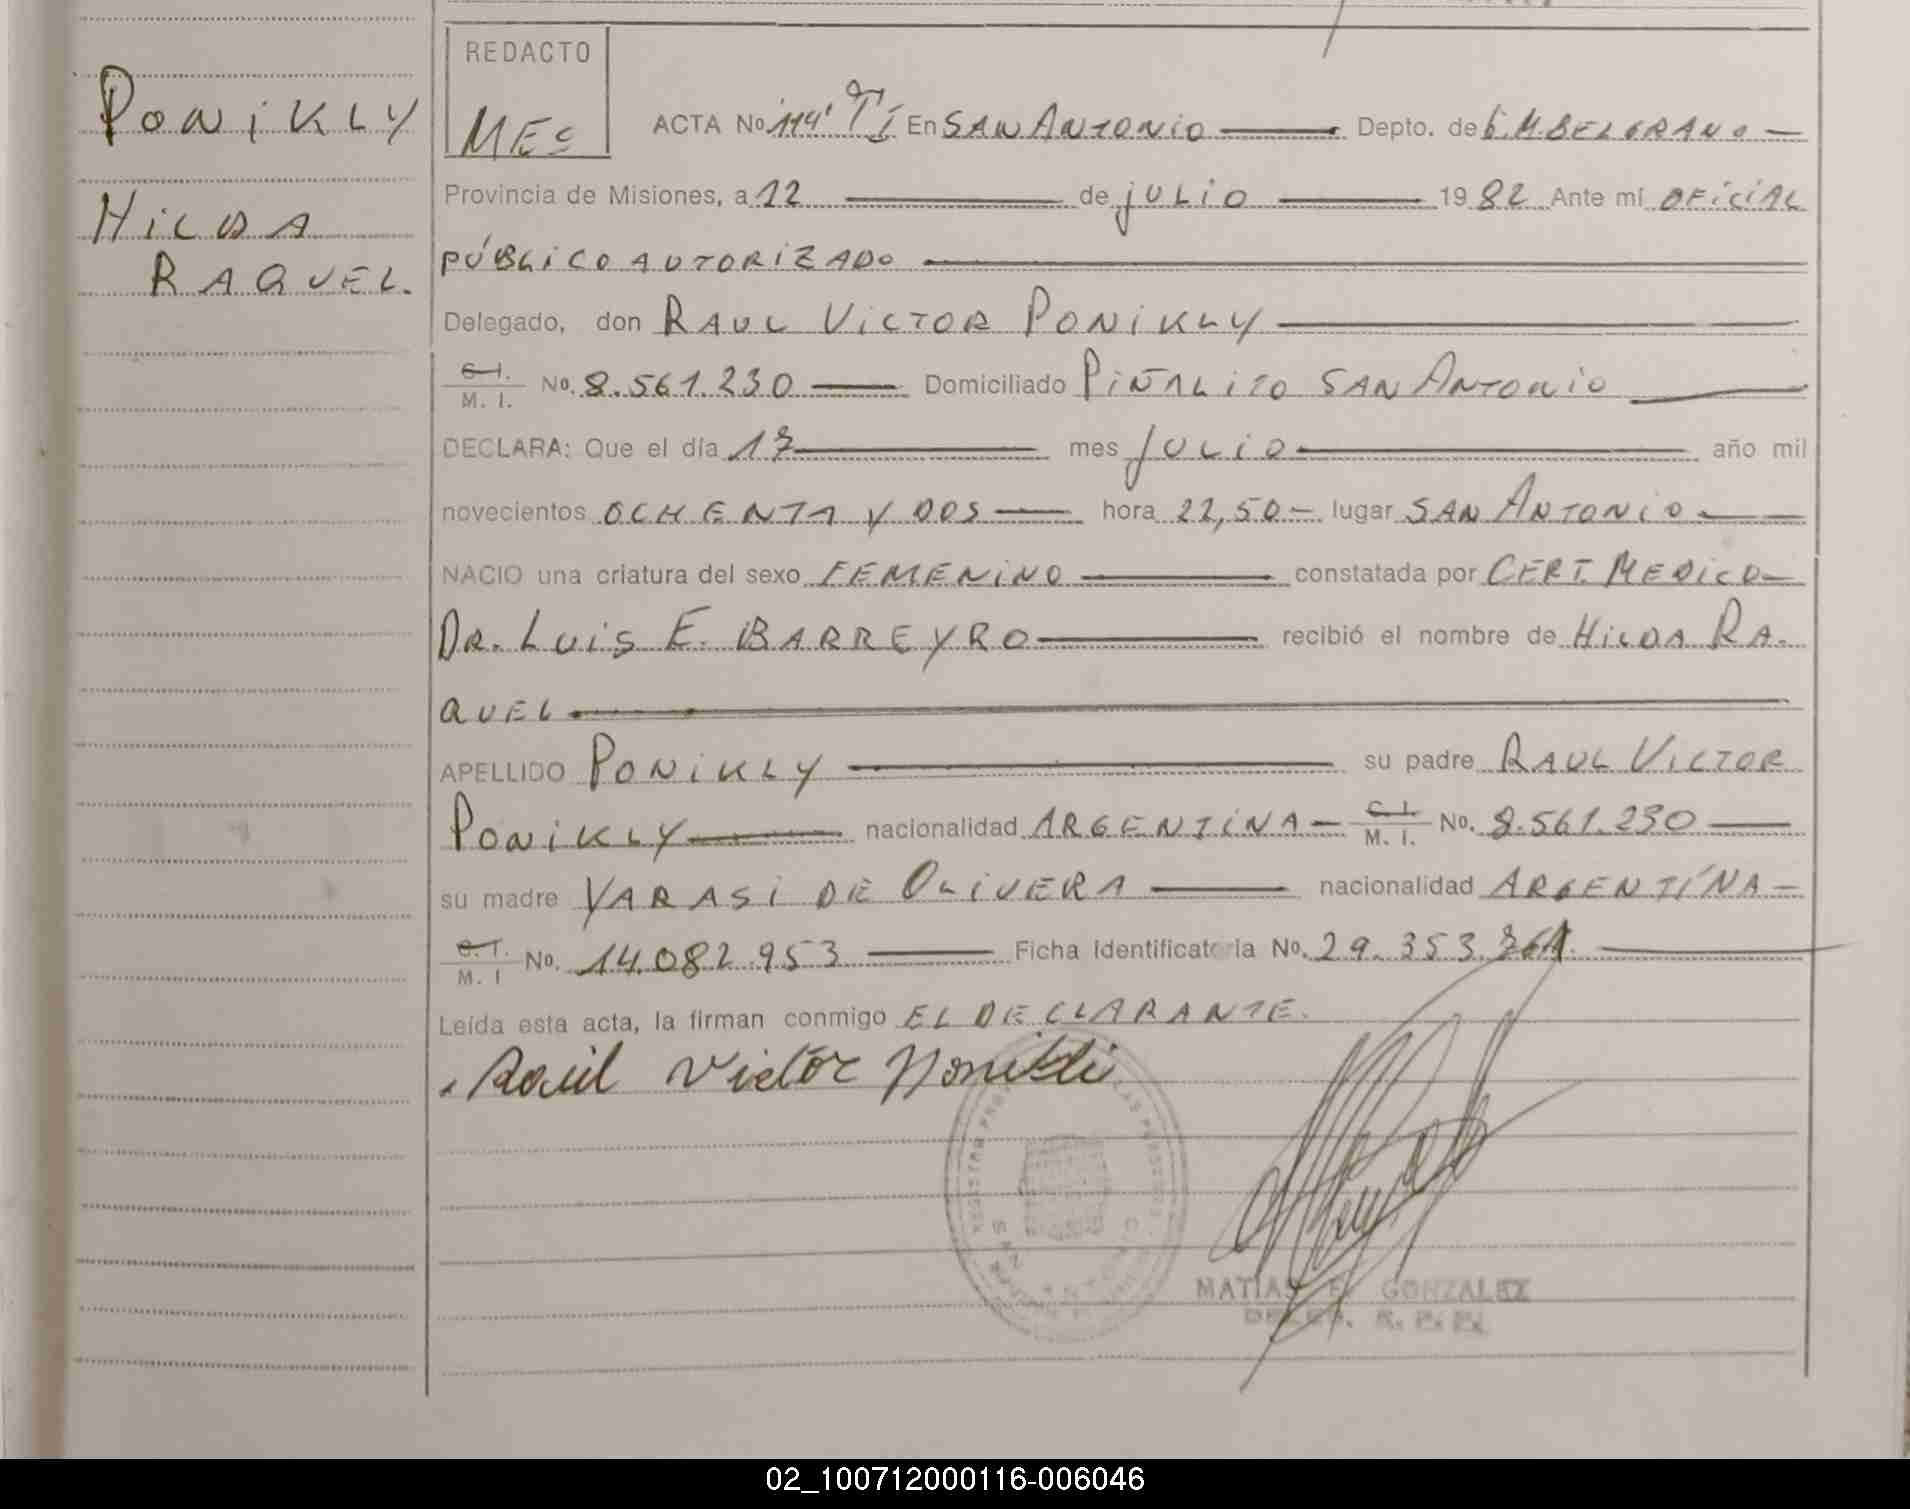 PONIKLY
HILDA
RAQUEL.
REDACTO
MEG
ACTA No 114 TI En SAN ANTONIO Depto. de G.M.BELGRANO
Provincia de Misiones, a 12 de JULIO 1982 Ante mi OFICIAL
PÚBLICO AUTORIZADO
Delegado, don RAUL VICTOR PONIKLY
C.I. M. I. No. 8.561.230 Domiciliado PIÑALITO SAN ANTONIO
DECLARA: Que el día mes JULIO año mil
novecientos OCHENTA Y DOS hora 22,50 lugar SAN ANTONIO
NACIO una criatura del sexo FEMENINO constatada por CERT. MEDICO
DR. LUIS E. BARREYRO recibió el nombre de HILDA RA-
QUEL
APELLIDO PONIKLY su padre RAUL VICTOR
PONIKLY nacionalidad ARGENTINA C.I. M. I. No. 8.561.230
su madre YARASI DE OLIVERA nacionalidad ARGENTÍNA
C.I. M. I No. 14.082.953 Ficha Identificatoria No. 29.353.361.
Leída esta acta, la firman conmigo EL DECLARANTE.
Raúl Victor Ponikli
SAN ANTONIO
MATIAS E. GONZALEZ
DELEG. R. P. P.
02_100712000116-006046